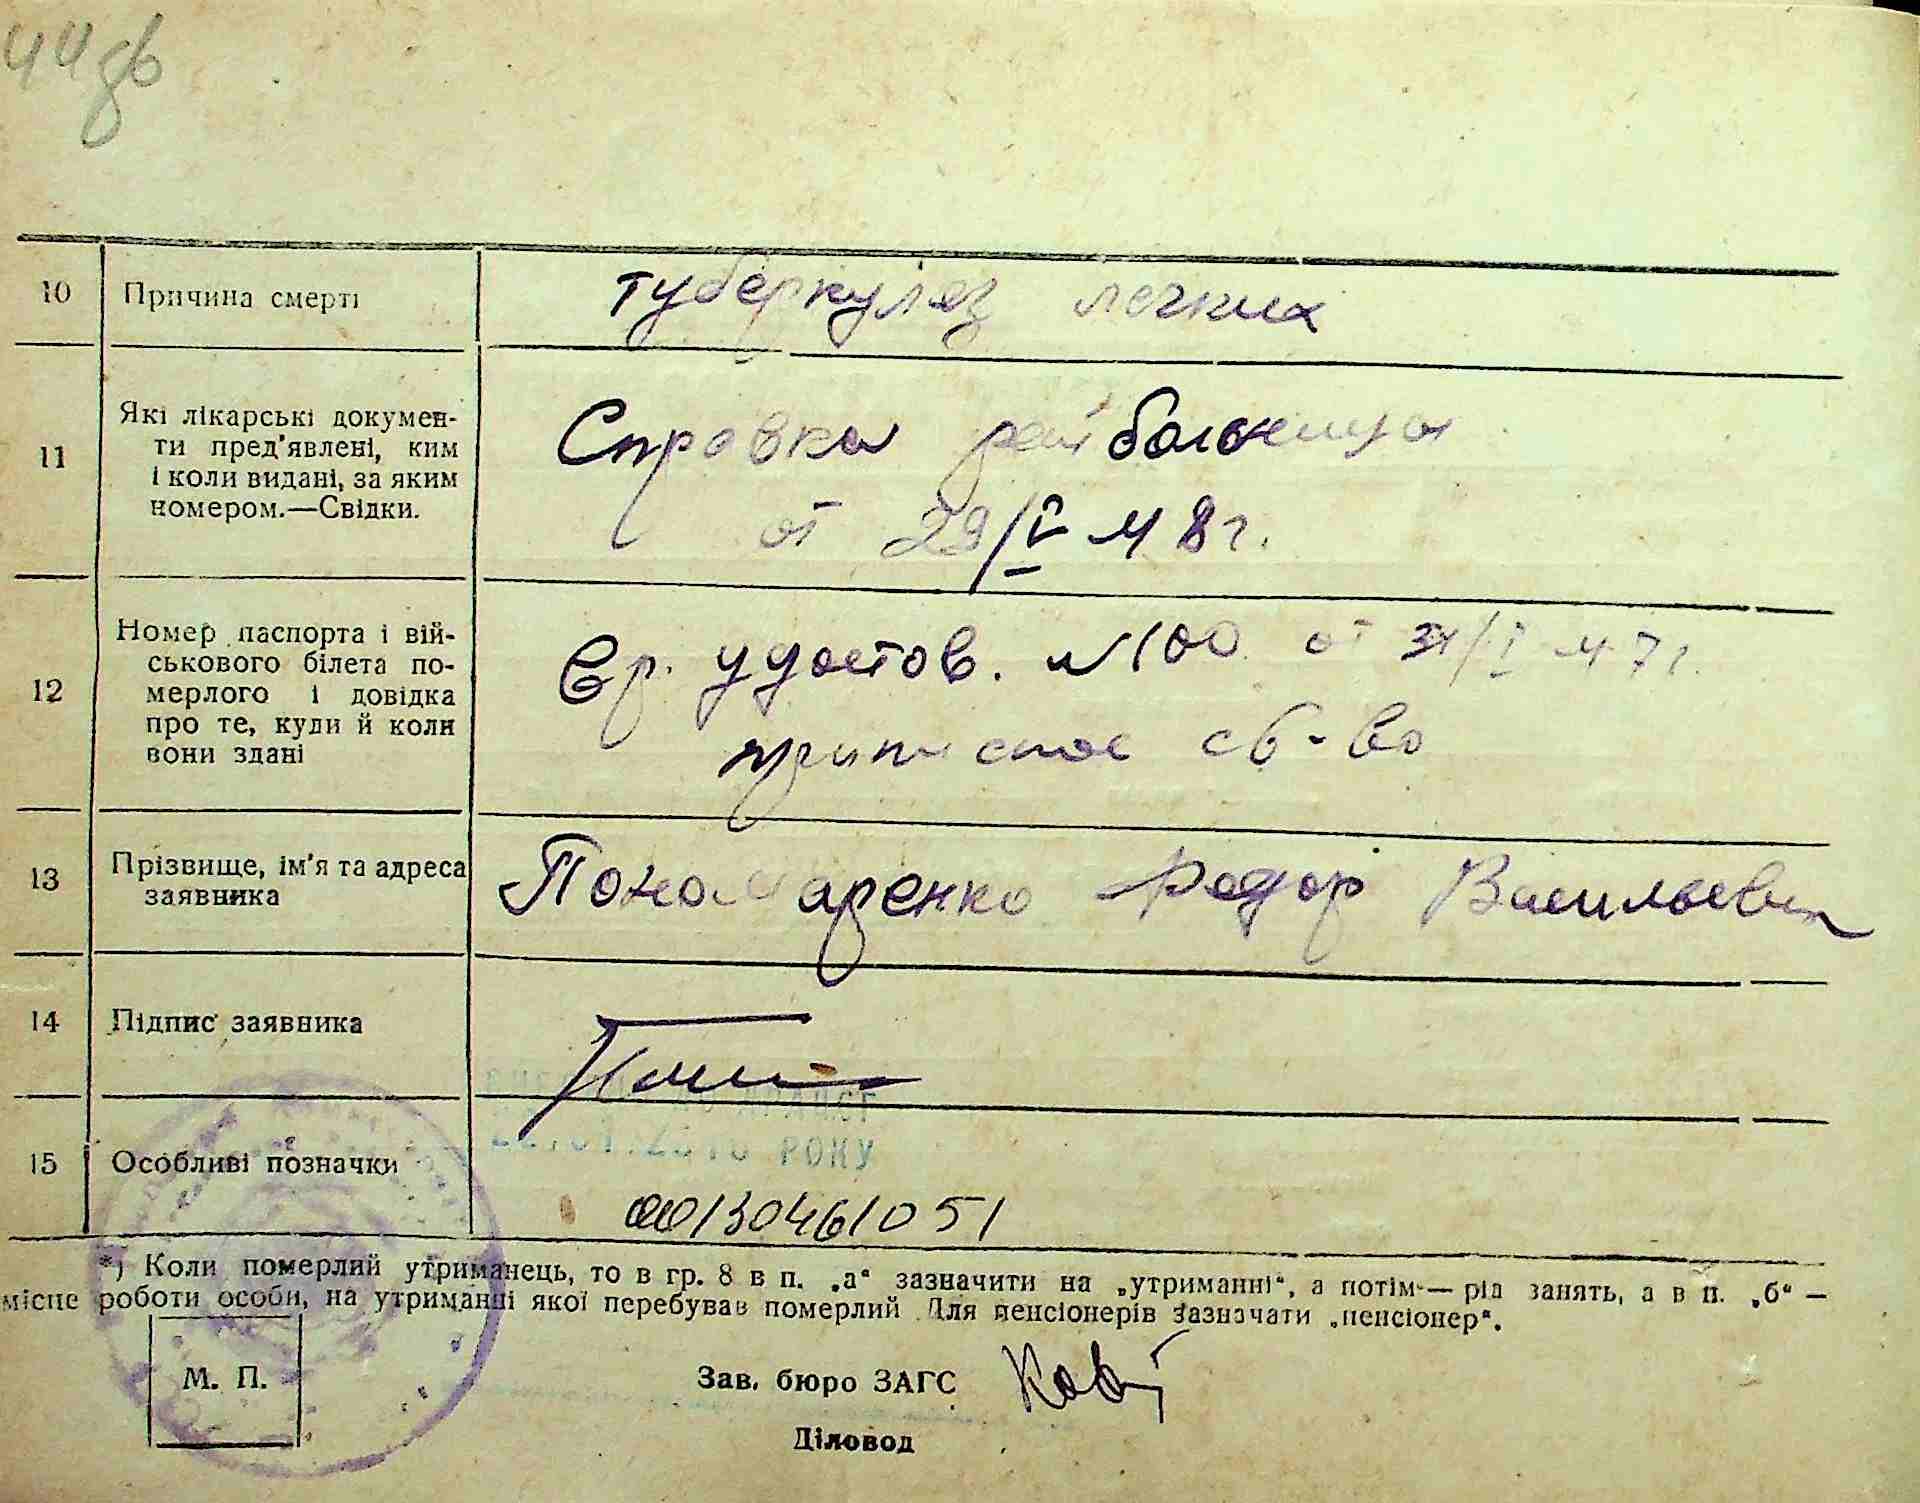 44 зв
10
Причина смерті
туберкулез легких
11
Які лікарські докумен-
ти пред'явлені, ким
і коли видані, за яким
номером.—Свідки.
Справка рай больницы
от 29/V 48 г.
12
Номер паспорта і вій-
ськового білета по-
мерлого і довідка
про те, куди й коли
вони здані
Вр. удостов. №100 от 31/I 47 г.
приписное св-во
13
Прізвище, ім'я та адреса
заявника
Пономаренко Федор Васильевич
14
Підпис заявника
15
Особливі позначки
РОКУ
00130461051
*) Коли померлий утриманець, то в гр. 8 в п. „а“ зазначити на „утриманні“, а потім — рід занять, а в п. „б“ —
місце роботи особи, на утриманні якої перебував померлий Для пенсіонерів зазначати „пенсіонер“.
М. П.
Зав. бюро ЗАГС
Діловод